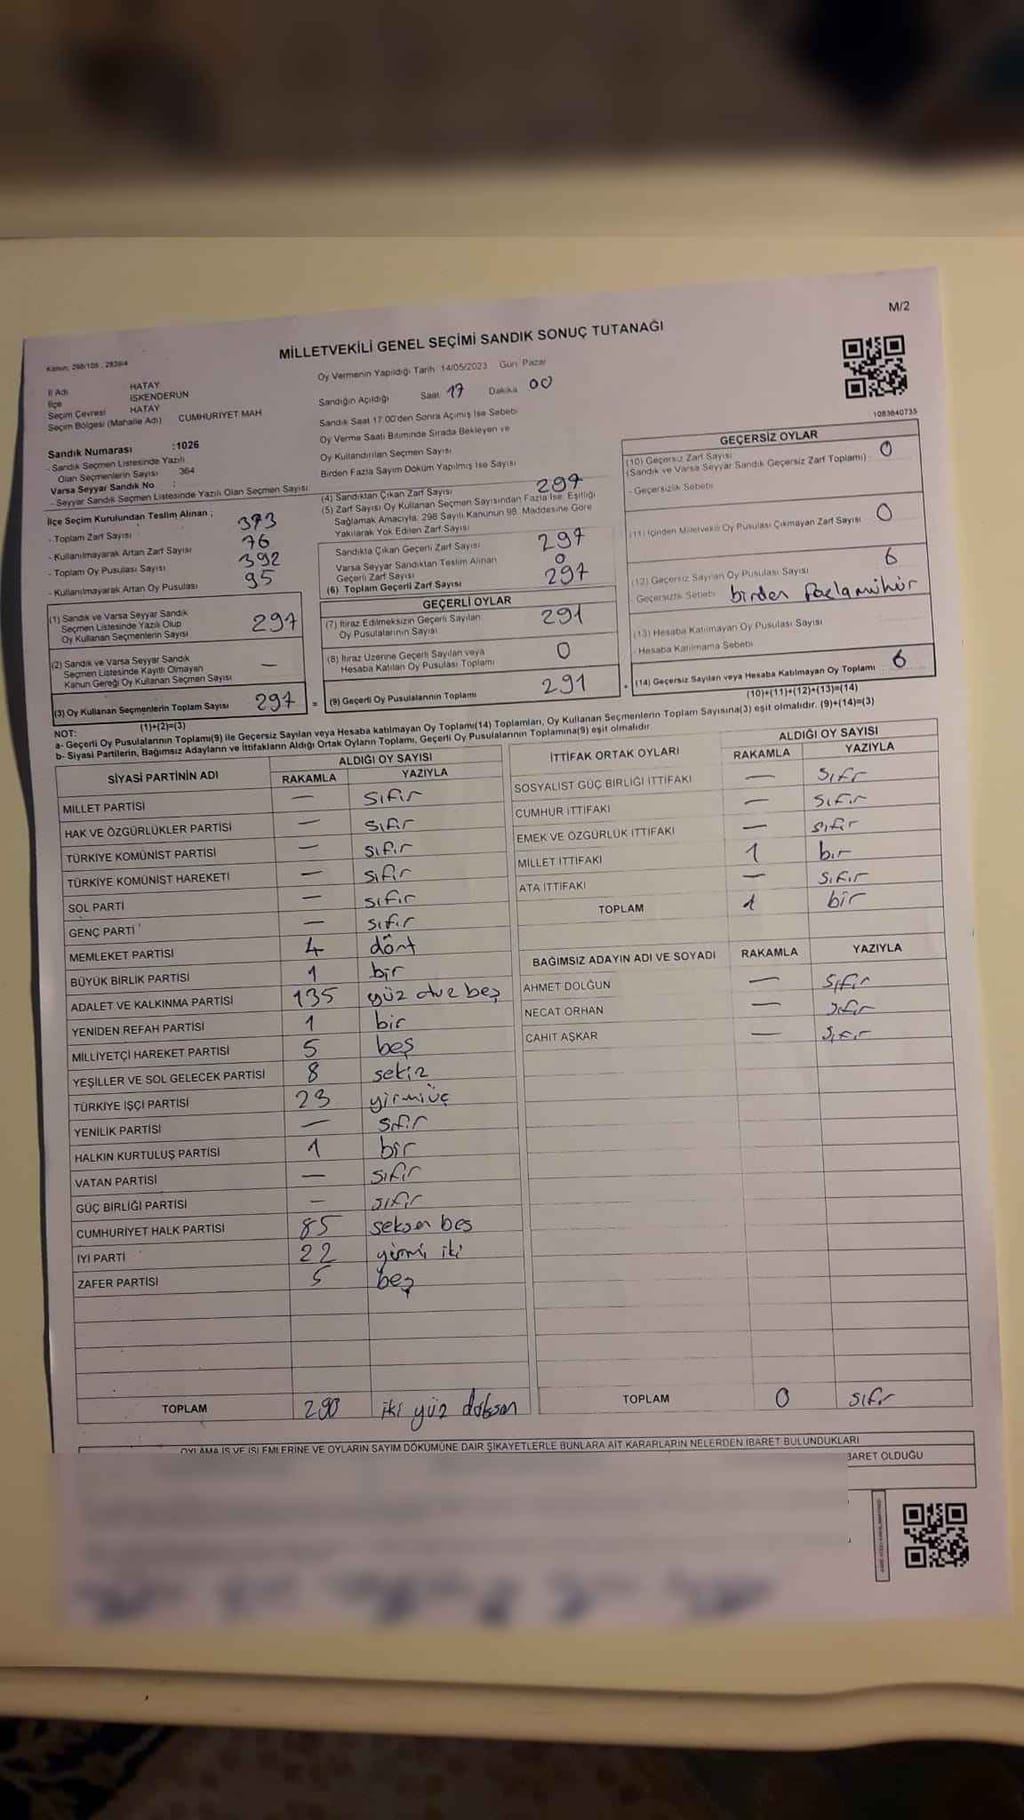 M/2
MİLLETVEKİLİ GENEL SEÇİMİ SANDIK SONUÇ TUTANAĞI
İl Adı HATAY
İlçe İSKENDERUN
Seçim Çevresi HATAY
Seçim Bölgesi (Mahalle Adı) CUMHURİYET MAH
Sandık Numarası :1026
- Sandık Seçmen Listesinde Yazılı
Olan Seçmenlerin Sayısı 364
Varsa Seyyar Sandık No :
- Seyyar Sandık Seçmen Listesinde Yazılı Olan Seçmen Sayısı
İlçe Seçim Kurulundan Teslim Alınan ;
- Toplam Zarf Sayısı 373
- Kullanılmayarak Artan Zarf Sayısı 76
- Toplam Oy Pusulası Sayısı 392
- Kullanılmayarak Artan Oy Pusulası 95
(1) Sandık ve Varsa Seyyar Sandık
Seçmen Listesinde Yazılı Olup
Oy Kullanan Seçmenlerin Sayısı 297
(2) Sandık ve Varsa Seyyar Sandık
Seçmen Listesinde Kayıtlı Olmayan
Kanun Gereği Oy Kullanan Seçmen Sayısı —
(3) Oy Kullanan Seçmenlerin Toplam Sayısı 297
(1)+(2)=(3)
Oy Vermenin Yapıldığı Tarih 14/05/2023 Gün: Pazar
Sandığın Açıldığı Saat 17 Dakika 00
Sandık Saat 17:00'den Sonra Açılmış İse Sebebi
Oy Verme Saati Bitiminde Sırada Bekleyen ve
Oy Kullandırılan Seçmen Sayısı
Birden Fazla Sayım Döküm Yapılmış İse Sayısı
(4) Sandıktan Çıkan Zarf Sayısı 297
(5) Zarf Sayısı Oy Kullanan Seçmen Sayısından Fazla İse, Eşitliği
Sağlamak Amacıyla, 298 Sayılı Kanunun 98. Maddesine Göre
Yakılarak Yok Edilen Zarf Sayısı
Sandıkta Çıkan Geçerli Zarf Sayısı 297
Varsa Seyyar Sandıktan Teslim Alınan
Geçerli Zarf Sayısı 0
(6) Toplam Geçerli Zarf Sayısı 297
GEÇERLİ OYLAR
(7) İtiraz Edilmeksizin Geçerli Sayılan
Oy Pusulalarının Sayısı 291
(8) İtiraz Üzerine Geçerli Sayılan veya
Hesaba Katılan Oy Pusulası Toplamı 0
= (9) Geçerli Oy Pusulalarının Toplamı 291
1083840735
GEÇERSİZ OYLAR
(10) Geçersiz Zarf Sayısı 0
(Sandık ve Varsa Seyyar Sandık Geçersiz Zarf Toplamı)
- Geçersizlik Sebebi
(11) İçinden Milletvekili Oy Pusulası Çıkmayan Zarf Sayısı 0
(12) Geçersiz Sayılan Oy Pusulası Sayısı 6
Geçersizlik Sebebi birden fazla mühür
(13) Hesaba Katılmayan Oy Pusulası Sayısı
- Hesaba Katılmama Sebebi
(14) Geçersiz Sayılan veya Hesaba Katılmayan Oy Toplamı 6
(10)+(11)+(12)+(13)=(14)
NOT:
a- Geçerli Oy Pusulalarının Toplamı(9) ile Geçersiz Sayılan veya Hesaba katılmayan Oy Toplamı(14) Toplamları, Oy Kullanan Seçmenlerin Toplam Sayısına(3) eşit olmalıdır. (9)+(14)=(3)
b- Siyasi Partilerin, Bağımsız Adayların ve İttifakların Aldığı Ortak Oyların Toplamı, Geçerli Oy Pusulalarının Toplamına(9) eşit olmalıdır
SİYASİ PARTİNİN ADI ALDIĞI OY SAYISI
RAKAMLA YAZIYLA
MİLLET PARTİSİ — sıfır
HAK VE ÖZGÜRLÜKLER PARTİSİ — sıfır
TÜRKİYE KOMÜNİST PARTİSİ — sıfır
TÜRKİYE KOMÜNİST HAREKETİ — sıfır
SOL PARTİ — sıfır
GENÇ PARTİ — sıfır
MEMLEKET PARTİSİ 4 dört
BÜYÜK BİRLİK PARTİSİ 1 bir
ADALET VE KALKINMA PARTİSİ 135 yüz otuz beş
YENİDEN REFAH PARTİSİ 1 bir
MİLLİYETÇİ HAREKET PARTİSİ 5 beş
YEŞİLLER VE SOL GELECEK PARTİSİ 8 sekiz
TÜRKİYE İŞÇİ PARTİSİ 23 yirmiüç
YENİLİK PARTİSİ — sıfır
HALKIN KURTULUŞ PARTİSİ 1 bir
VATAN PARTİSİ — sıfır
GÜÇ BİRLİĞİ PARTİSİ — sıfır
CUMHURİYET HALK PARTİSİ 85 seksen beş
İYİ PARTİ 22 yirmi iki
ZAFER PARTİSİ 5 beş
TOPLAM 290 iki yüz doksan
İTTİFAK ORTAK OYLARI ALDIĞI OY SAYISI
RAKAMLA YAZIYLA
SOSYALİST GÜÇ BİRLİĞİ İTTİFAKI — sıfır
CUMHUR İTTİFAKI — sıfır
EMEK VE ÖZGÜRLÜK İTTİFAKI — sıfır
MİLLET İTTİFAKI 1 bir
ATA İTTİFAKI — sıfır
TOPLAM 1 bir
BAĞIMSIZ ADAYIN ADI VE SOYADI RAKAMLA YAZIYLA
AHMET DOLĞUN — sıfır
NECAT ORHAN — sıfır
CAHİT AŞKAR — sıfır
TOPLAM 0 sıfır
OYLAMA İŞ VE İŞLEMLERİNE VE OYLARIN SAYIM DÖKÜMÜNE DAİR ŞİKAYETLERLE BUNLARA AİT KARARLARIN NELERDEN İBARET BULUNDUKLARI
İBARET OLDUĞU